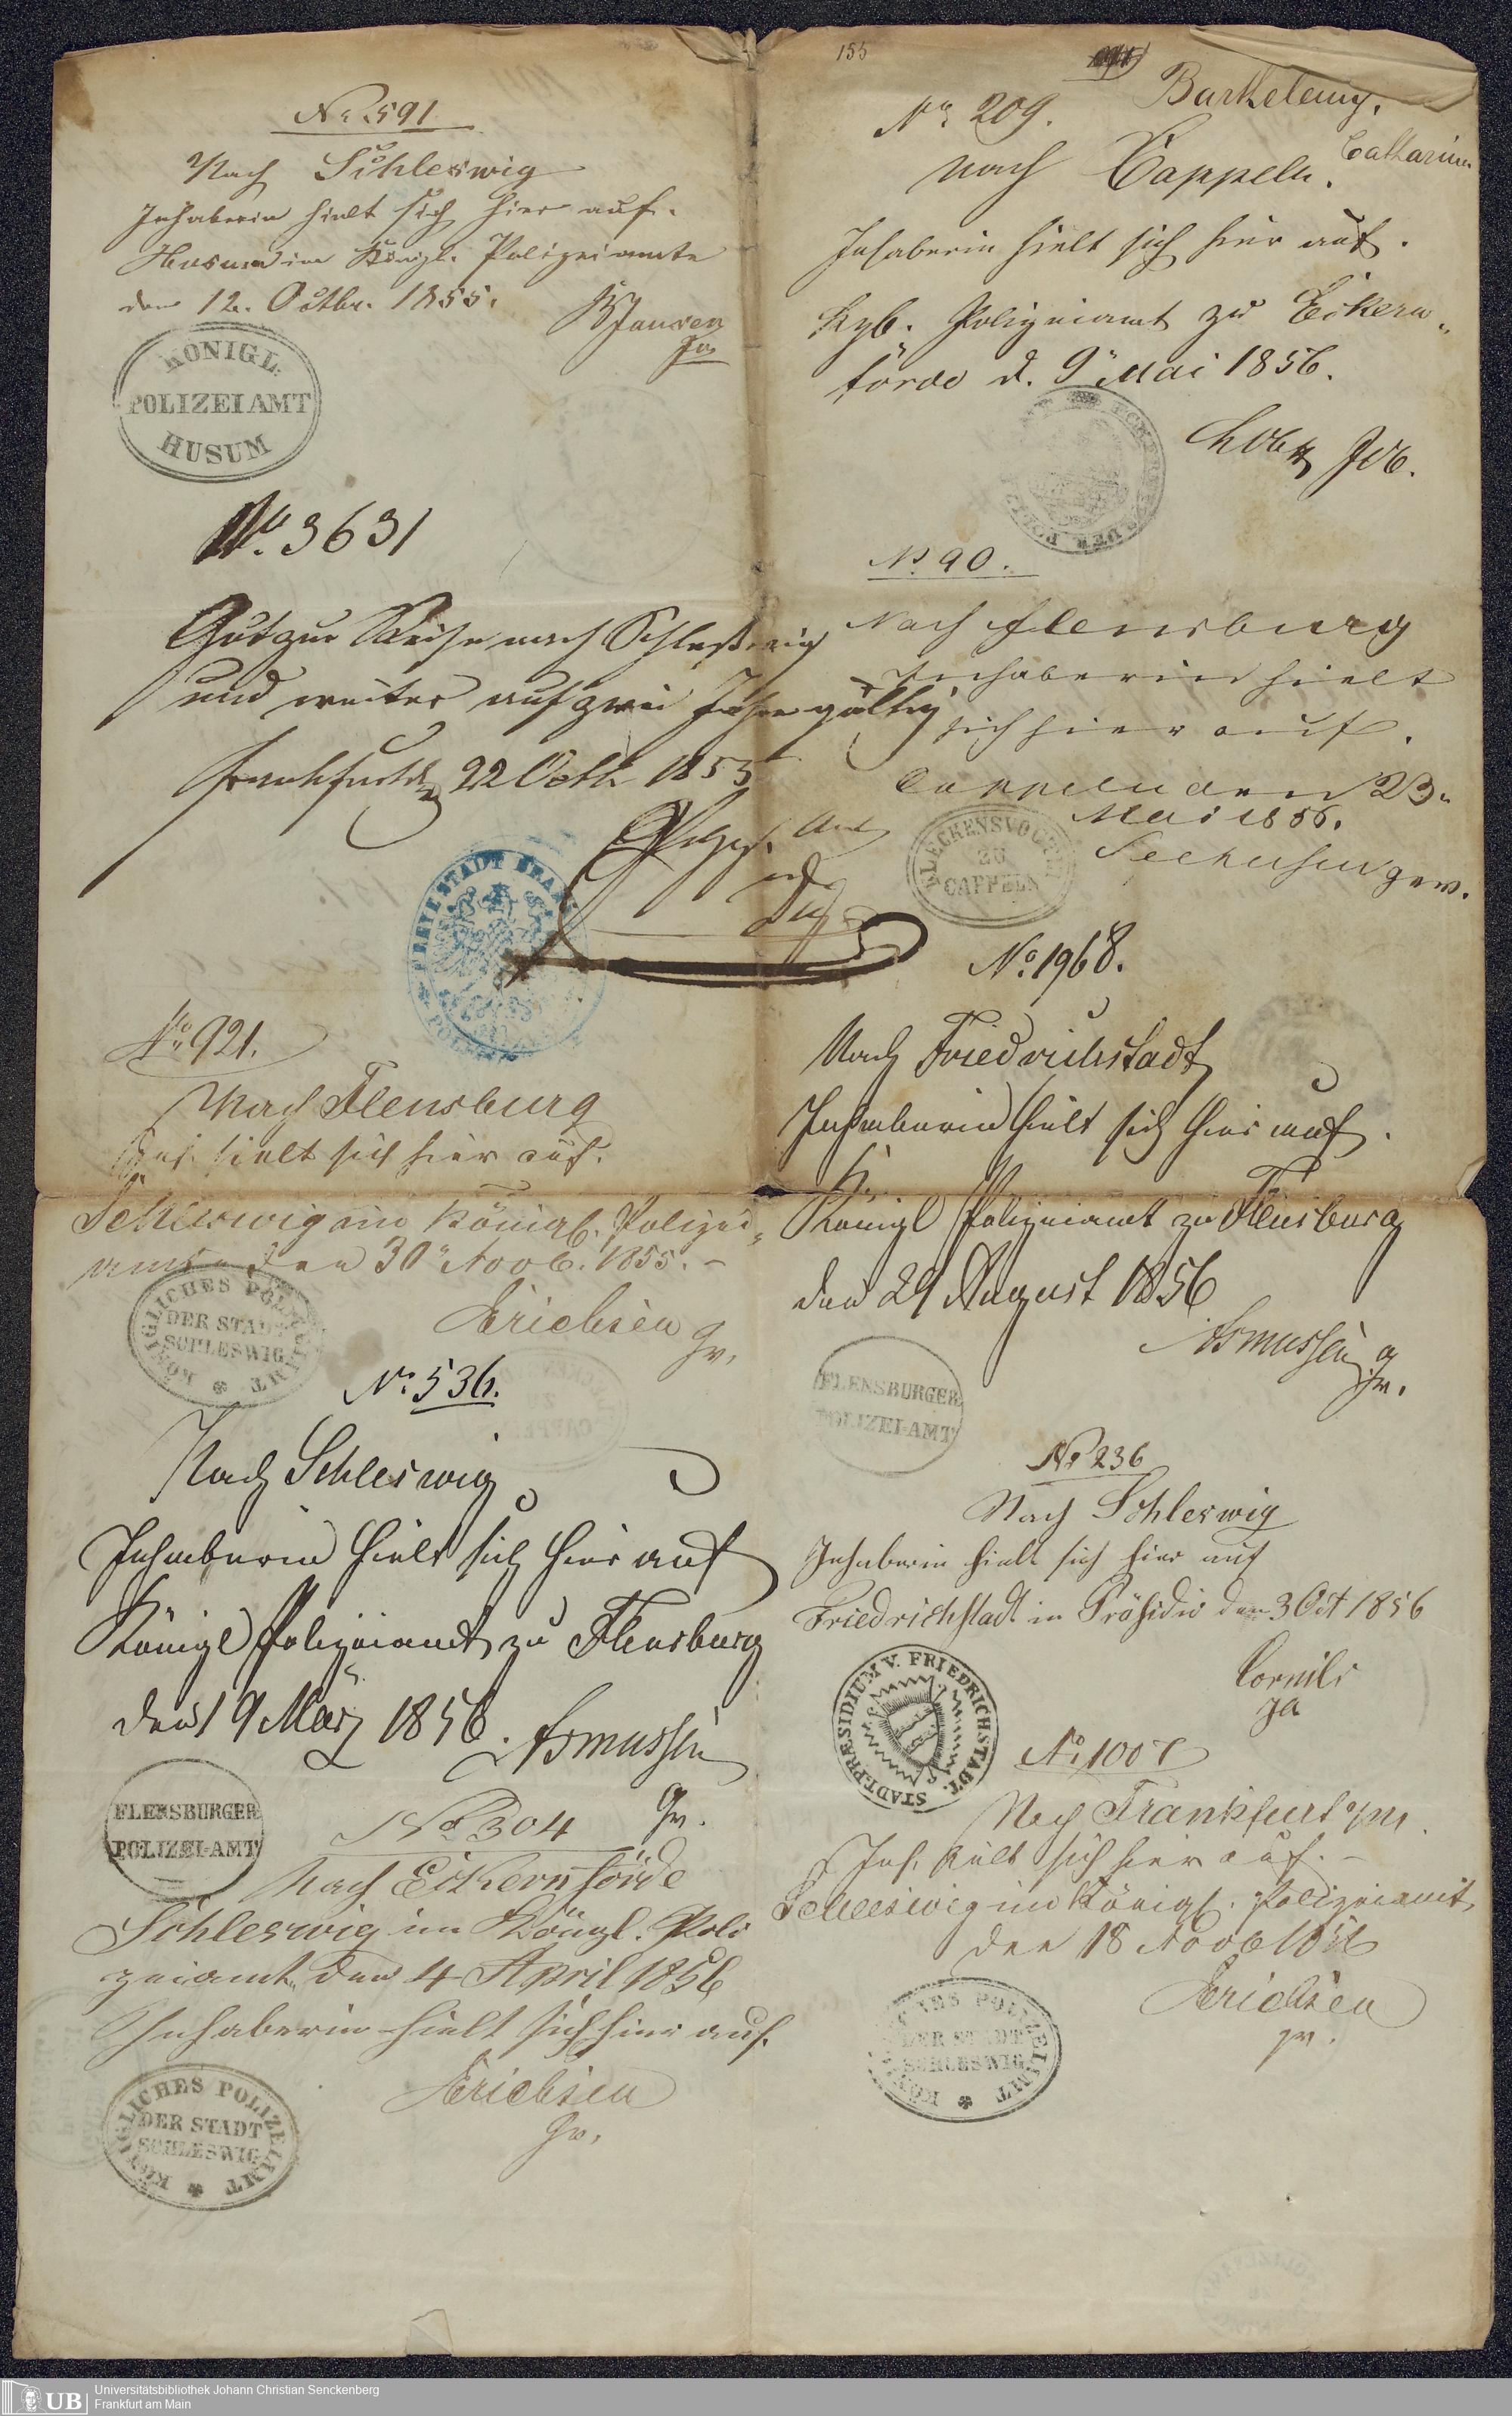 No. 591
Nach Schleswig
Inhaberin hielt sich hier auf.
Husum im Königl. Polizeiamte
den 12. Octbr. 1855.
Jansen
KÖNIGL.
POLIZEIAMT
HUSUM
No. 3631
Gut zur Reise nach Schleswig
und weiter auf zwei Jahre gültig
Frankfurt 22 Octb 1855
FREIE STADT FRANK
No. 921.
Nach Flensburg
Inh. hielt sich hier auf.
Schleswig im Königl. Polizei-
amte den 30 Novb. 1855.
Erichsen
gv.
KÖNIGLICHES POLIZEIAMT
DER STADT
SCHLESWIG
No. 536.
Nach Schleswig
Inhaberin hielt sich hier auf
Königl Polizeiamt zu Flensburg
den 19 März 1856.
Asmussen
gv.
FLENSBURGER
POLIZEI-AMT
No 304
Nach Eckernförde
Schleswig im Köngl. Poli
zeiamt den 4 April 1856
Inhaberin hielt sich hier auf.
Erichsen
gv.
KÖNIGLICHES POLIZEIAMT
DER STADT
SCHLESWIG
155
Barthelemy,
Catharina
No. 209.
nach Cappeln.
Inhaberin hielt sich hier auf.
Kgl. Polizeiamt zu Eckern-
förde d. 9 Mai 1856.
No 90.
Nach Flensburg
Inhaberin hielt
sich hier auf.
Cappeln den 23.
Mai 1856.
gev.
FLECKENSVOGTEI
ZU
CAPPELN
No. 1968.
Nach Friedrichstadt
Inhaberin hielt sich hier auf.
Königl Polizeiamt zu Flensburg
den 29 August 1856
Asmussen
gv.
FLENSBURGER
POLIZEI-AMT
No 236
Nach Schleswig
Inhaberin hielt sich hier auf
Friedrichstadt in Präsidio den 3 Oct 1856
Cornils
STADT-PRÆSIDIUM V. FRIEDRICHSTADT.
No. 1007
Nach Frankfurt a/M.
Inh. hielt sich hier auf.
Schleswig im Königl. Polizeiamt,
den 18 Novb 1856
Erichsen
gv.
KÖNIGLICHES POLIZEIAMT
DER STADT
SCHLESWIG
UB
Universitätsbibliothek Johann Christian Senckenberg
Frankfurt am Main